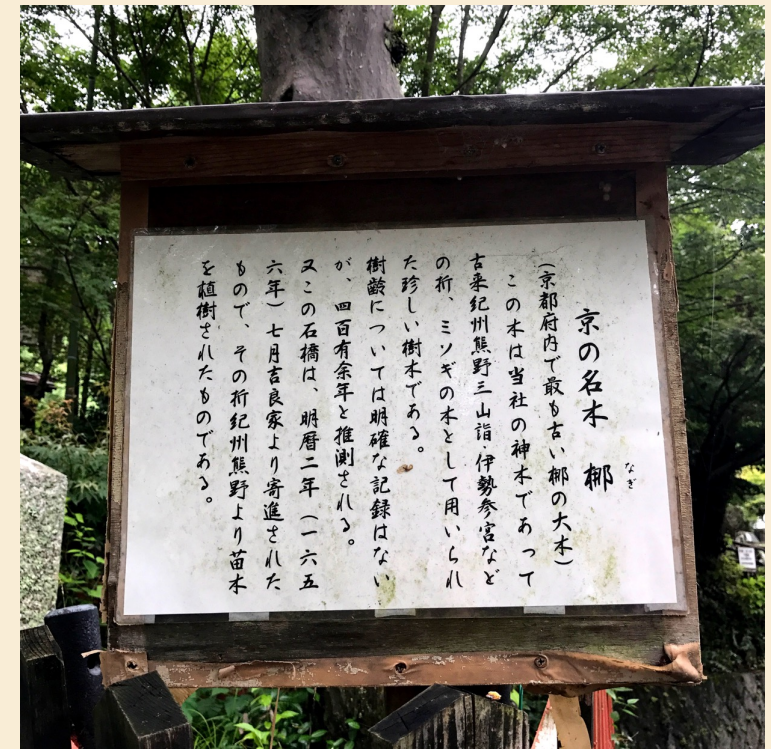 京の名木 梛
なぎ
(京都府内で最も古い梛の大木)
この木は当社の神木であって
古来紀州熊野三山詣・伊勢参宮など
の折、ミソギの木として用いられ
た珍しい樹木である。
樹齢については明確な記録はない
が、四百有余年と推測される。
又この石橋は、明暦二年(一六五
六年)七月吉良家より寄進された
もので、その折紀州熊野より苗木
を植樹されたものである。